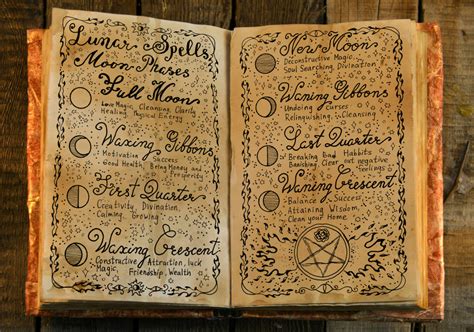 Lunar Spells
Moon Phases
Full Moon
Love Magic, Cleansing, Clarity
Healing, Physical Energy
Waxing Gibbons
Motivation Success
Good Health, Being Money and
Prosperity
First Quarter
Creativity, Divination,
Calming, Growing
Waxing Crescent
Constructive Attraction, luck
Magic, Friendship, Wealth
New Moon
Deconstructive Magic,
Soul Searching, Divination
Waning Gibbons
Undoing Curses
Relinquishing, Cleansing
Last Quarter
Breaking Bad Habbits
Banishing Clear out negative
feelings
Waning Crescent
Balance Success
Attaining Wisdom,
Clean your Home